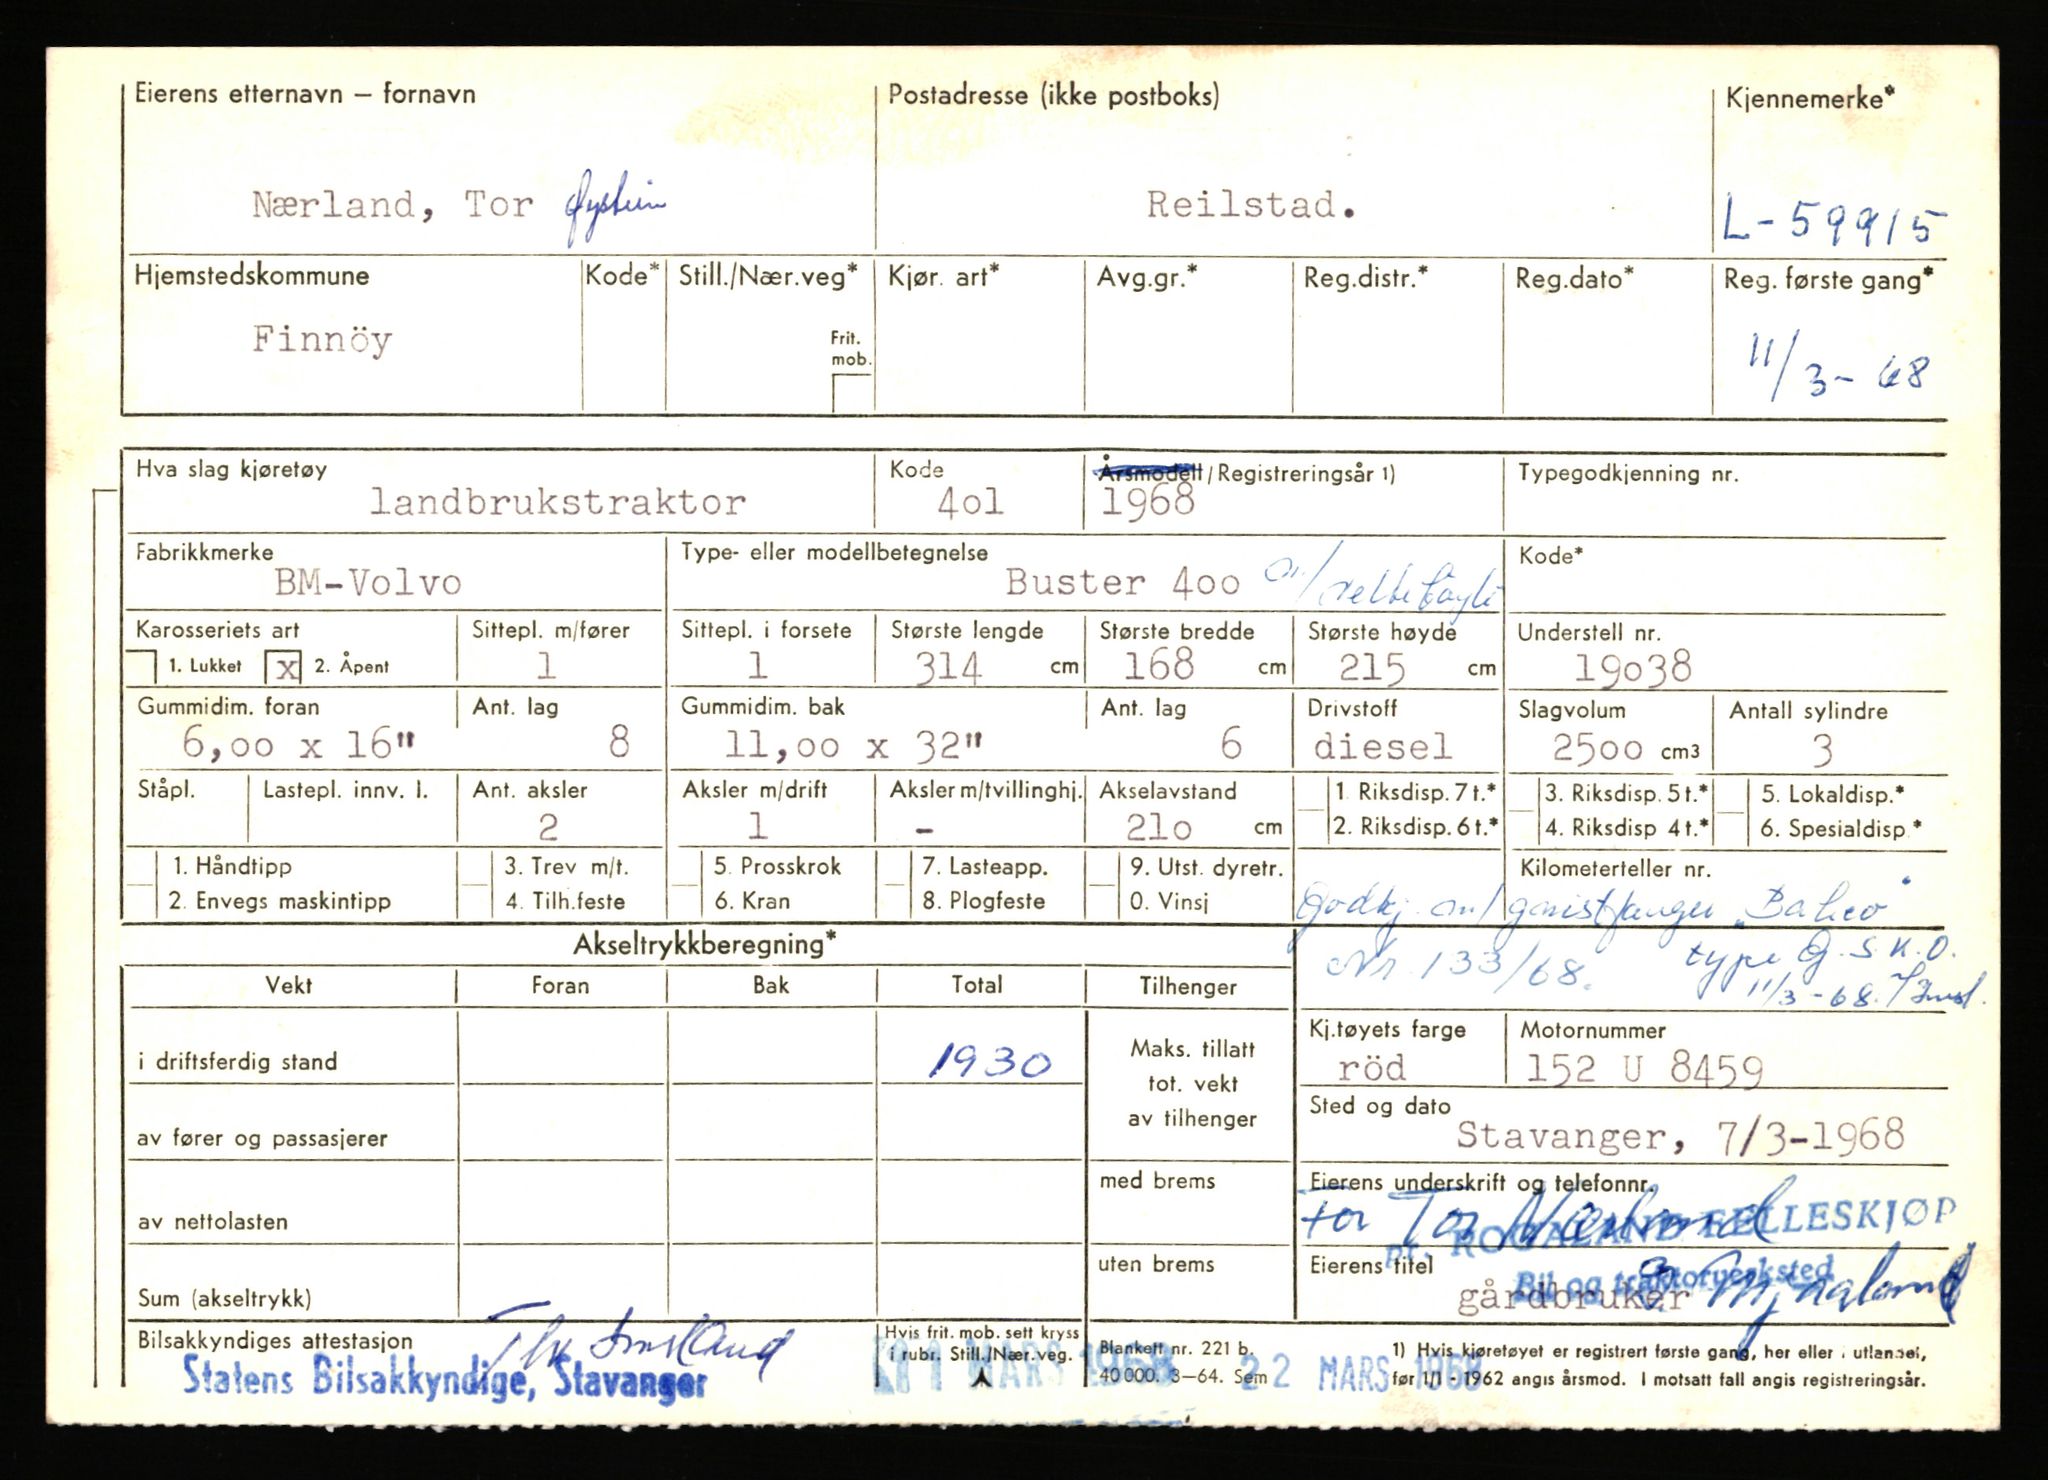 Eierens etternavn – fornavn Postadresse (ikke postboks) Kjennemerke*
Nærland, Tor Øystein Reilstad. L-59915
Hjemstedskommune Kode* Still./Nær.veg* Kjør. art* Avg.gr.* Reg.distr.* Reg.dato* Reg. første gang*
Finnöy Frit. mob. 11/3-68
Hva slag kjøretøy Kode Årsmodell/Registreringsår 1) Typegodkjenning nr.
landbrukstraktor 4o1 1968
Fabrikkmerke Type- eller modellbetegnelse Kode*
BM-Volvo Buster 4oo m/
Karosseriets art Sittepl. m/fører Sittepl. i forsete Største lengde Største bredde Største høyde Understell nr.
1. Lukket x 2. Åpent 1 1 314 cm 168 cm 215 cm 19o38
Gummidim. foran Ant. lag Gummidim. bak Ant. lag Drivstoff Slagvolum Antall sylindre
6,oo x 16" 8 11,oo x 32" 6 diesel 25oo cm3 3
Ståpl. Lastepl. innv. l. Ant. aksler Aksler m/drift Aksler m/tvillinghj. Akselavstand 1. Riksdisp. 7 t.* 3. Riksdisp. 5 t.* 5. Lokaldisp.*
2 1 - 21o cm 2. Riksdisp. 6 t.* 4. Riksdisp 4 t.* 6. Spesialdisp.*
1. Håndtipp 3. Trev m/t. 5. Prosskrok 7. Lasteapp. 9. Utst. dyretr. Kilometerteller nr.
2. Envegs maskintipp 4. Tilh.feste 6. Kran 8. Plogfeste 0. Vinsj
Godkj. m/ "Bahco"
Akseltrykkberegning* Nr. 133/68. type G.S.K.O.
11/3-68.
Vekt Foran Bak Total Tilhenger
Kj.tøyets farge Motornummer
i driftsferdig stand 1930 Maks. tillatt tot. vekt av tilhenger röd 152 U 8459
Sted og dato
av fører og passasjerer Stavanger, 7/3-1968
med brems Eierens underskrift og telefonnr.
av nettolasten For Tor Nærland
pr. ROGALAND FELLESKJØP
uten brems Eierens titel Bil og traktorverksted
Sum (akseltrykk) gårdbruker
Bilsakkyndiges attestasjon Hvis frit. mob. sett kryss i rubr. Still./Nær.veg. Blankett nr. 221 b. 1) Hvis kjøretøyet er registrert første gang, her eller i utlandet,
Statens Bilsakkyndige, Stavanger 11 MARS 1968 40 000. 3–64. Sem 22 MARS 1968 før 1/1 - 1962 angis årsmod. I motsatt fall angis registreringsår.